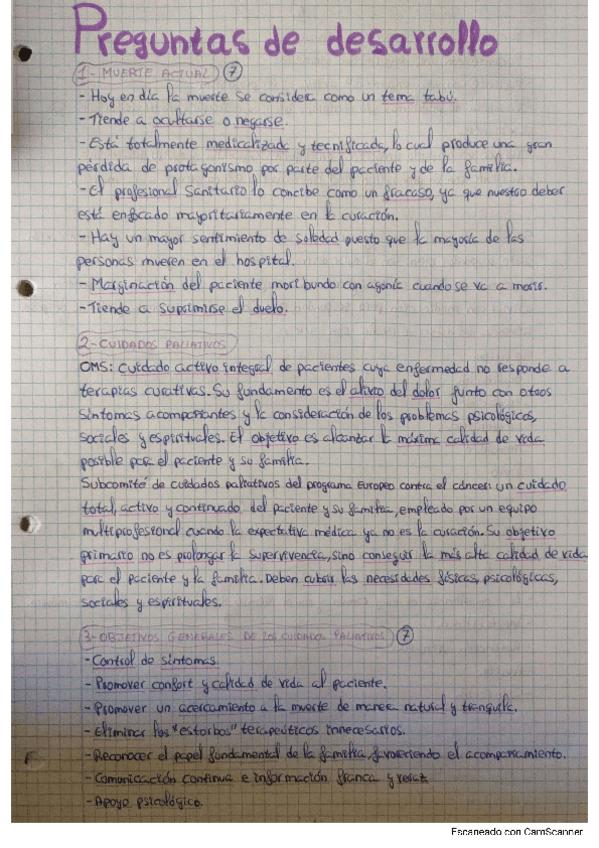 Preguntas de desarrollo
1- MUERTE ACTUAL 7
- Hoy en día la muerte se considera como un tema tabú.
- Tiende a ocultarse o negarse.
- Está totalmente medicalizada y tecnificada, lo cual produce una gran
pérdida de protagonismo por parte del paciente y de la familia.
- El profesional sanitario lo concibe como un fracaso, ya que nuestro deber
está enfocado mayoritariamente en la curación.
- Hay un mayor sentimiento de soledad puesto que la mayoría de las
personas mueren en el hospital.
- Marginación del paciente moribundo con agonía cuando se va a morir.
- Tiende a suprimirse el duelo.
2- CUIDADOS PALIATIVOS
OMS: Cuidado activo integral de pacientes cuya enfermedad no responde a
terapias curativas. Su fundamento es el alivio del dolor junto con otros
síntomas acompañantes y la consideración de los problemas psicológicos,
sociales y espirituales. El objetivo es alcanzar la máxima calidad de vida
posible para el paciente y su familia.
Subcomité de cuidados paliativos del programa Europeo contra el cáncer: un cuidado
total, activo y continuado del paciente y su familia, empleado por un equipo
multiprofesional cuando la expectativa médica ya no es la curación. Su objetivo
primario no es prolongar la supervivencia, sino conseguir la más alta calidad de vida
para el paciente y la familia. Deben cubrir las necesidades físicas, psicológicas,
sociales y espirituales.
3- OBJETIVOS GENERALES DE LOS CUIDADOS PALIATIVOS 7
- Control de síntomas.
- Promover confort y calidad de vida al paciente.
- Promover un acercamiento a la muerte de manera natural y tranquila.
- Eliminar los "estorbos" terapéuticos innecesarios.
- Reconocer el papel fundamental de la familia, favoreciendo el acompañamiento.
- Comunicación continua e información franca y
- Apoyo psicológico.
Escaneado con CamScanner